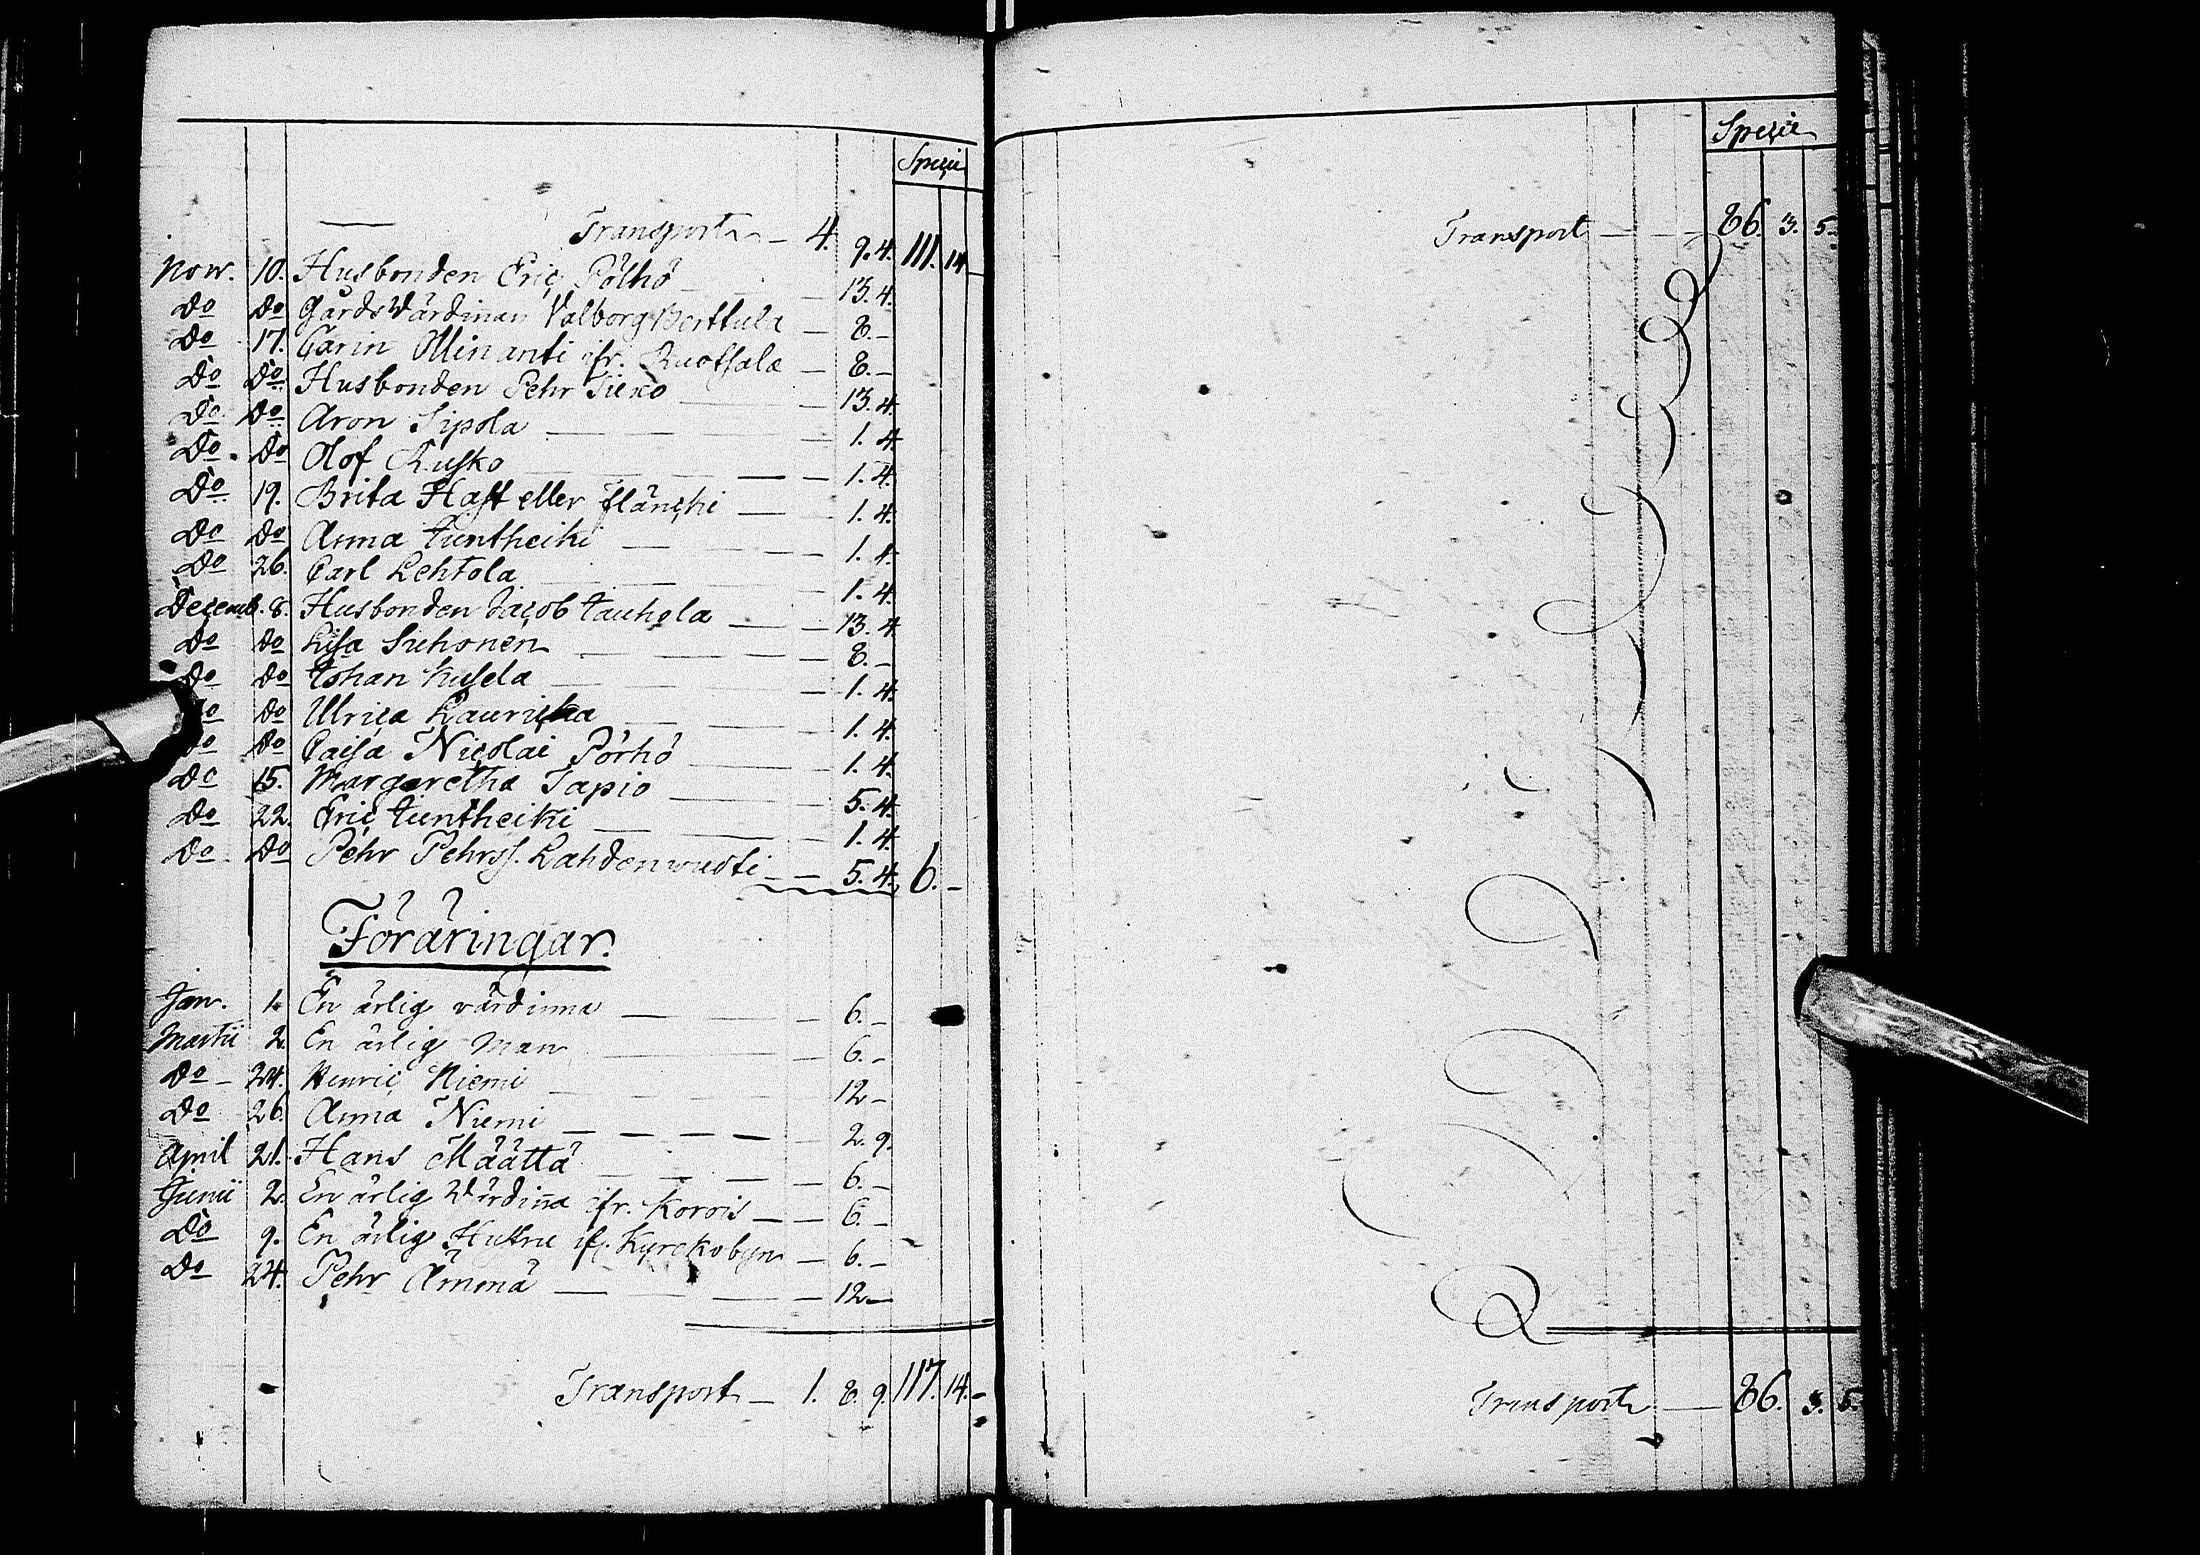 Speçie
Transport — 4. 9. 4. 111. 14 —
Now. 10. Husbonden Eriç Pölhö — 13. 4.
Do Do Gårds Värdinan Valborg Berttula — 8. –
Do 17. Carin Ollinanti ifr. Ruotsala — 8. –
Do Do Husbonden Pehr — 13. 4.
Do Do Aron Sipola — 1. 4.
Do Do Olof Rusko — 1. 4.
Do 19. Brita Hast eller — 1. 4.
Do Do Anna Juntheiki — 1. 4.
Do 26. Carl Lehtola — 1. 4.
Decemb. 8. Husbonden Jacob Jauhola — 13. 4.
Do Do Lisa Suhonen — 8. –
Do Do Johan Kusela — 1. 4.
Do Do Ulriça — 1. 4.
Do Do Caisa Niçolai Pörhö — 1. 4.
Do 15. Margaretha Tapio — 5. 4.
Do 22. Eriç Juntheiki — 1. 4.
Do Do Pehr Pehrss. Lahdenwuoti — 5. 4. 6. –
Föräringar.
Jan. 1. En ärlig värdinna — 6. –
Martii 2. En ärlig Man — 6. –
Do 24. Henriç Niemi — 12 –
Do 26. Anna Niemi — 2. 9.
April 21. Hans Määttä — 6. –
Junii 2. En ärlig Wärdiña ifr. Korois — 6. –
Do 9. En ärlig Hustru if. Kyrckobyn — 6. –
Do 24. Pehr Ämmä — 12 –
Transport — 1. 8. 9. 117. 14. –
Speçie
Transport — 86. 3. 5.
Transport — 86. 3. 5.